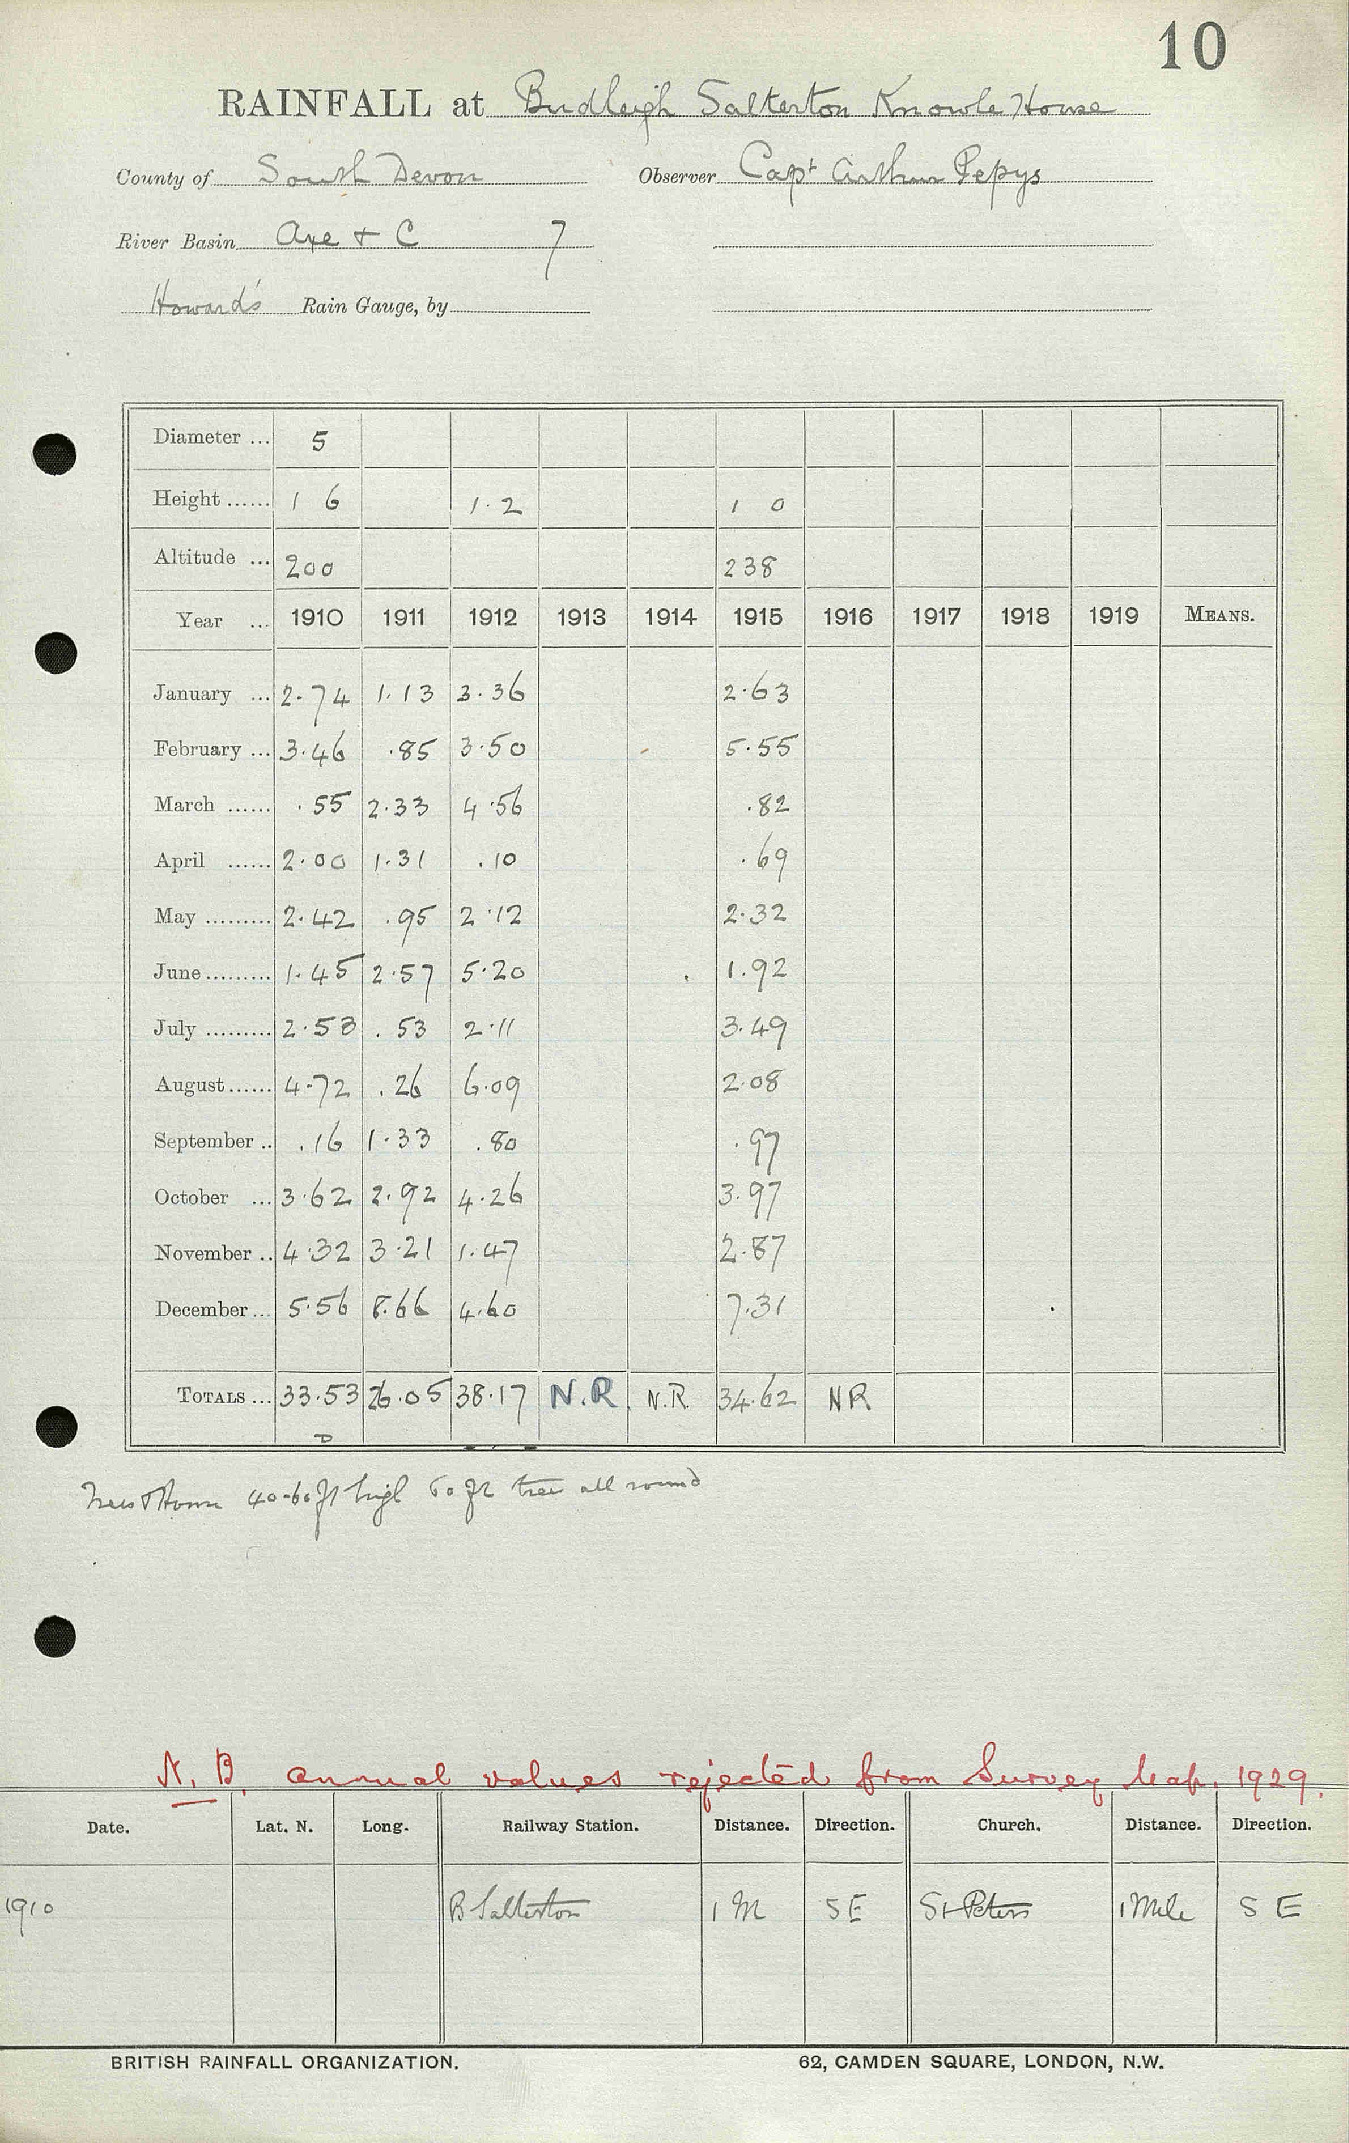 10
RAINFALL at Budleigh Salterton Knowle House
County of South Devon Observer Capt Arthur Pepys
River Basin Axe + C 7
Howard's Rain Gauge, by
Diameter ... 5
Height ...... 1 6 1.2 1 0
Altitude ... 200 238
Year ... 1910 1911 1912 1913 1914 1915 1916 1917 1918 1919 MEANS.
January ... 2.74 1.13 3.36 2.63
February ... 3.46 .85 3.50 5.55
March ...... .55 2.33 4.56 .82
April ...... 2.00 1.31 .10 .69
May ......... 2.42 .95 2.12 2.32
June ......... 1.45 2.57 5.20 1.92
July ......... 2.53 .53 2.11 3.49
August ...... 4.72 .26 6.09 2.08
September .. .16 1.33 .80 .97
October ... 3.62 2.92 4.26 3.97
November .. 4.32 3.21 1.47 2.87
December ... 5.56 8.66 4.60 7.31
TOTALS ... 33.53 26.05 38.17 N.R. N.R. 34.62 NR
D
40-60 ft high 60 ft tree all round
N.B. annual values rejected from Survey Map. 1929.
Date. Lat. N. Long. Railway Station. Distance. Direction. Church. Distance. Direction.
1910 B Salterton 1 M SE St Peters 1 Mile S E
BRITISH RAINFALL ORGANIZATION. 62, CAMDEN SQUARE, LONDON, N.W.